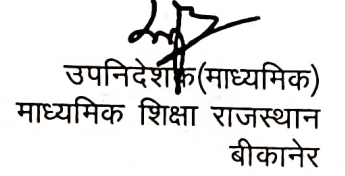 उपनिदेशक(माध्यमिक)
माध्यमिक शिक्षा राजस्थान
बीकानेर